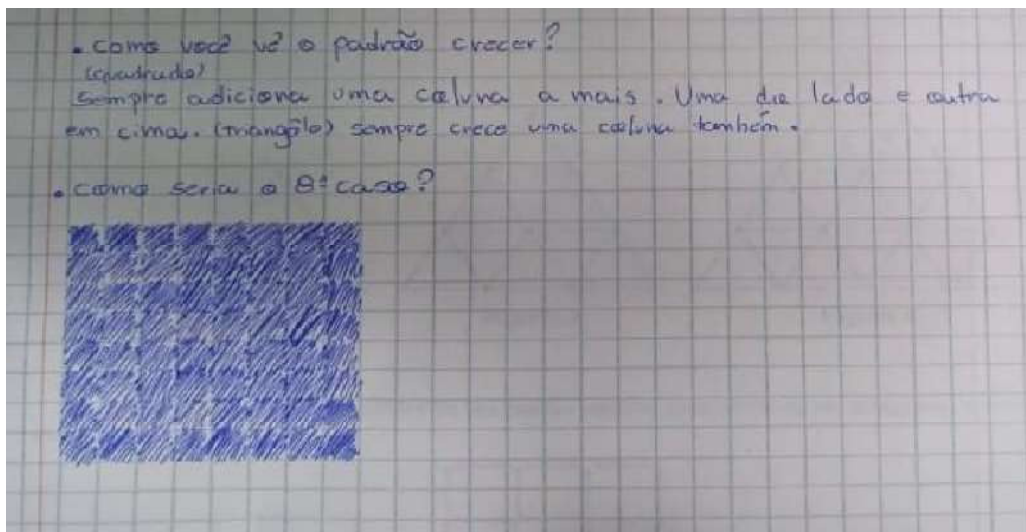 . Como você vê o padrão crecer?
(quadrado)
Sempre adiciona uma coluna a mais. Uma do lado e outra
em cima. (triangôlo) sempre crece uma coluna também.
. Como seria o 8º caso?